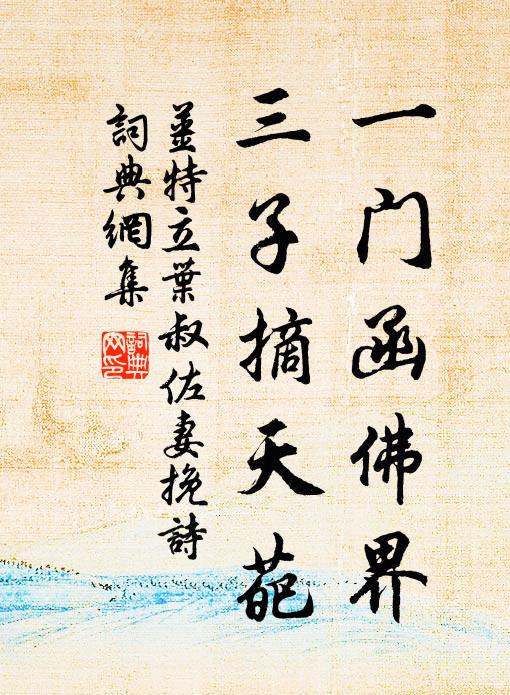 一门函佛界
三子摘天葩
姜特立葉叔佐妻挽詩
詞典網集
詞典